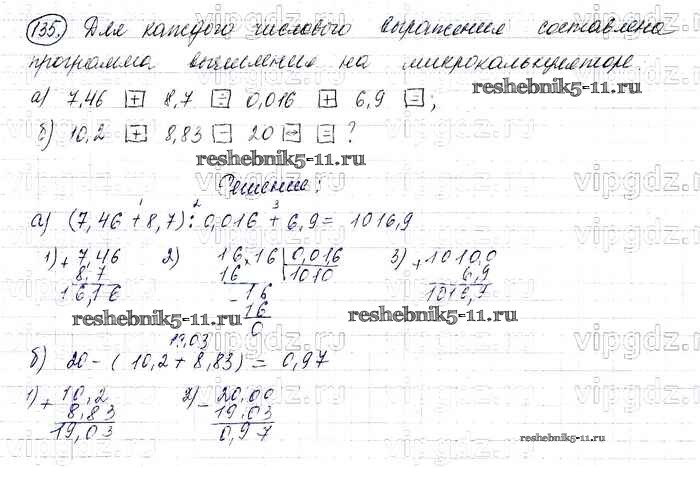 135. Для каждого числового выражения составлена
программа вычисления на микрокалькуляторе.
reshebnik5-11.ru
а) 7,46 + 8,7 = 0,016 + 6,9 = ;
б) 10,2 + 8,83 − 20 ↔ = ?
reshebnik5-11.ru
Решение:
1 2 3
а) (7,46 + 8,7) : 0,016 + 6,9 = 1016,9
1) + 7,46 2) 16,16 0,016 3) + 1010,0
8,7 16 1010 6,9
16,16 − 16 1016,9
16
0
reshebnik5-11.ru reshebnik5-11.ru
19,03
б) 20 − ( 10,2 + 8,83) = 0,97
1) + 10,2 2) − 20,00
8,83 19,03
19,03 0,97
reshebnik5-11.ru
reshebnik5-11.ru
vipgdz.ru
vipgdz.ru
vipgdz.ru
vipgdz.ru